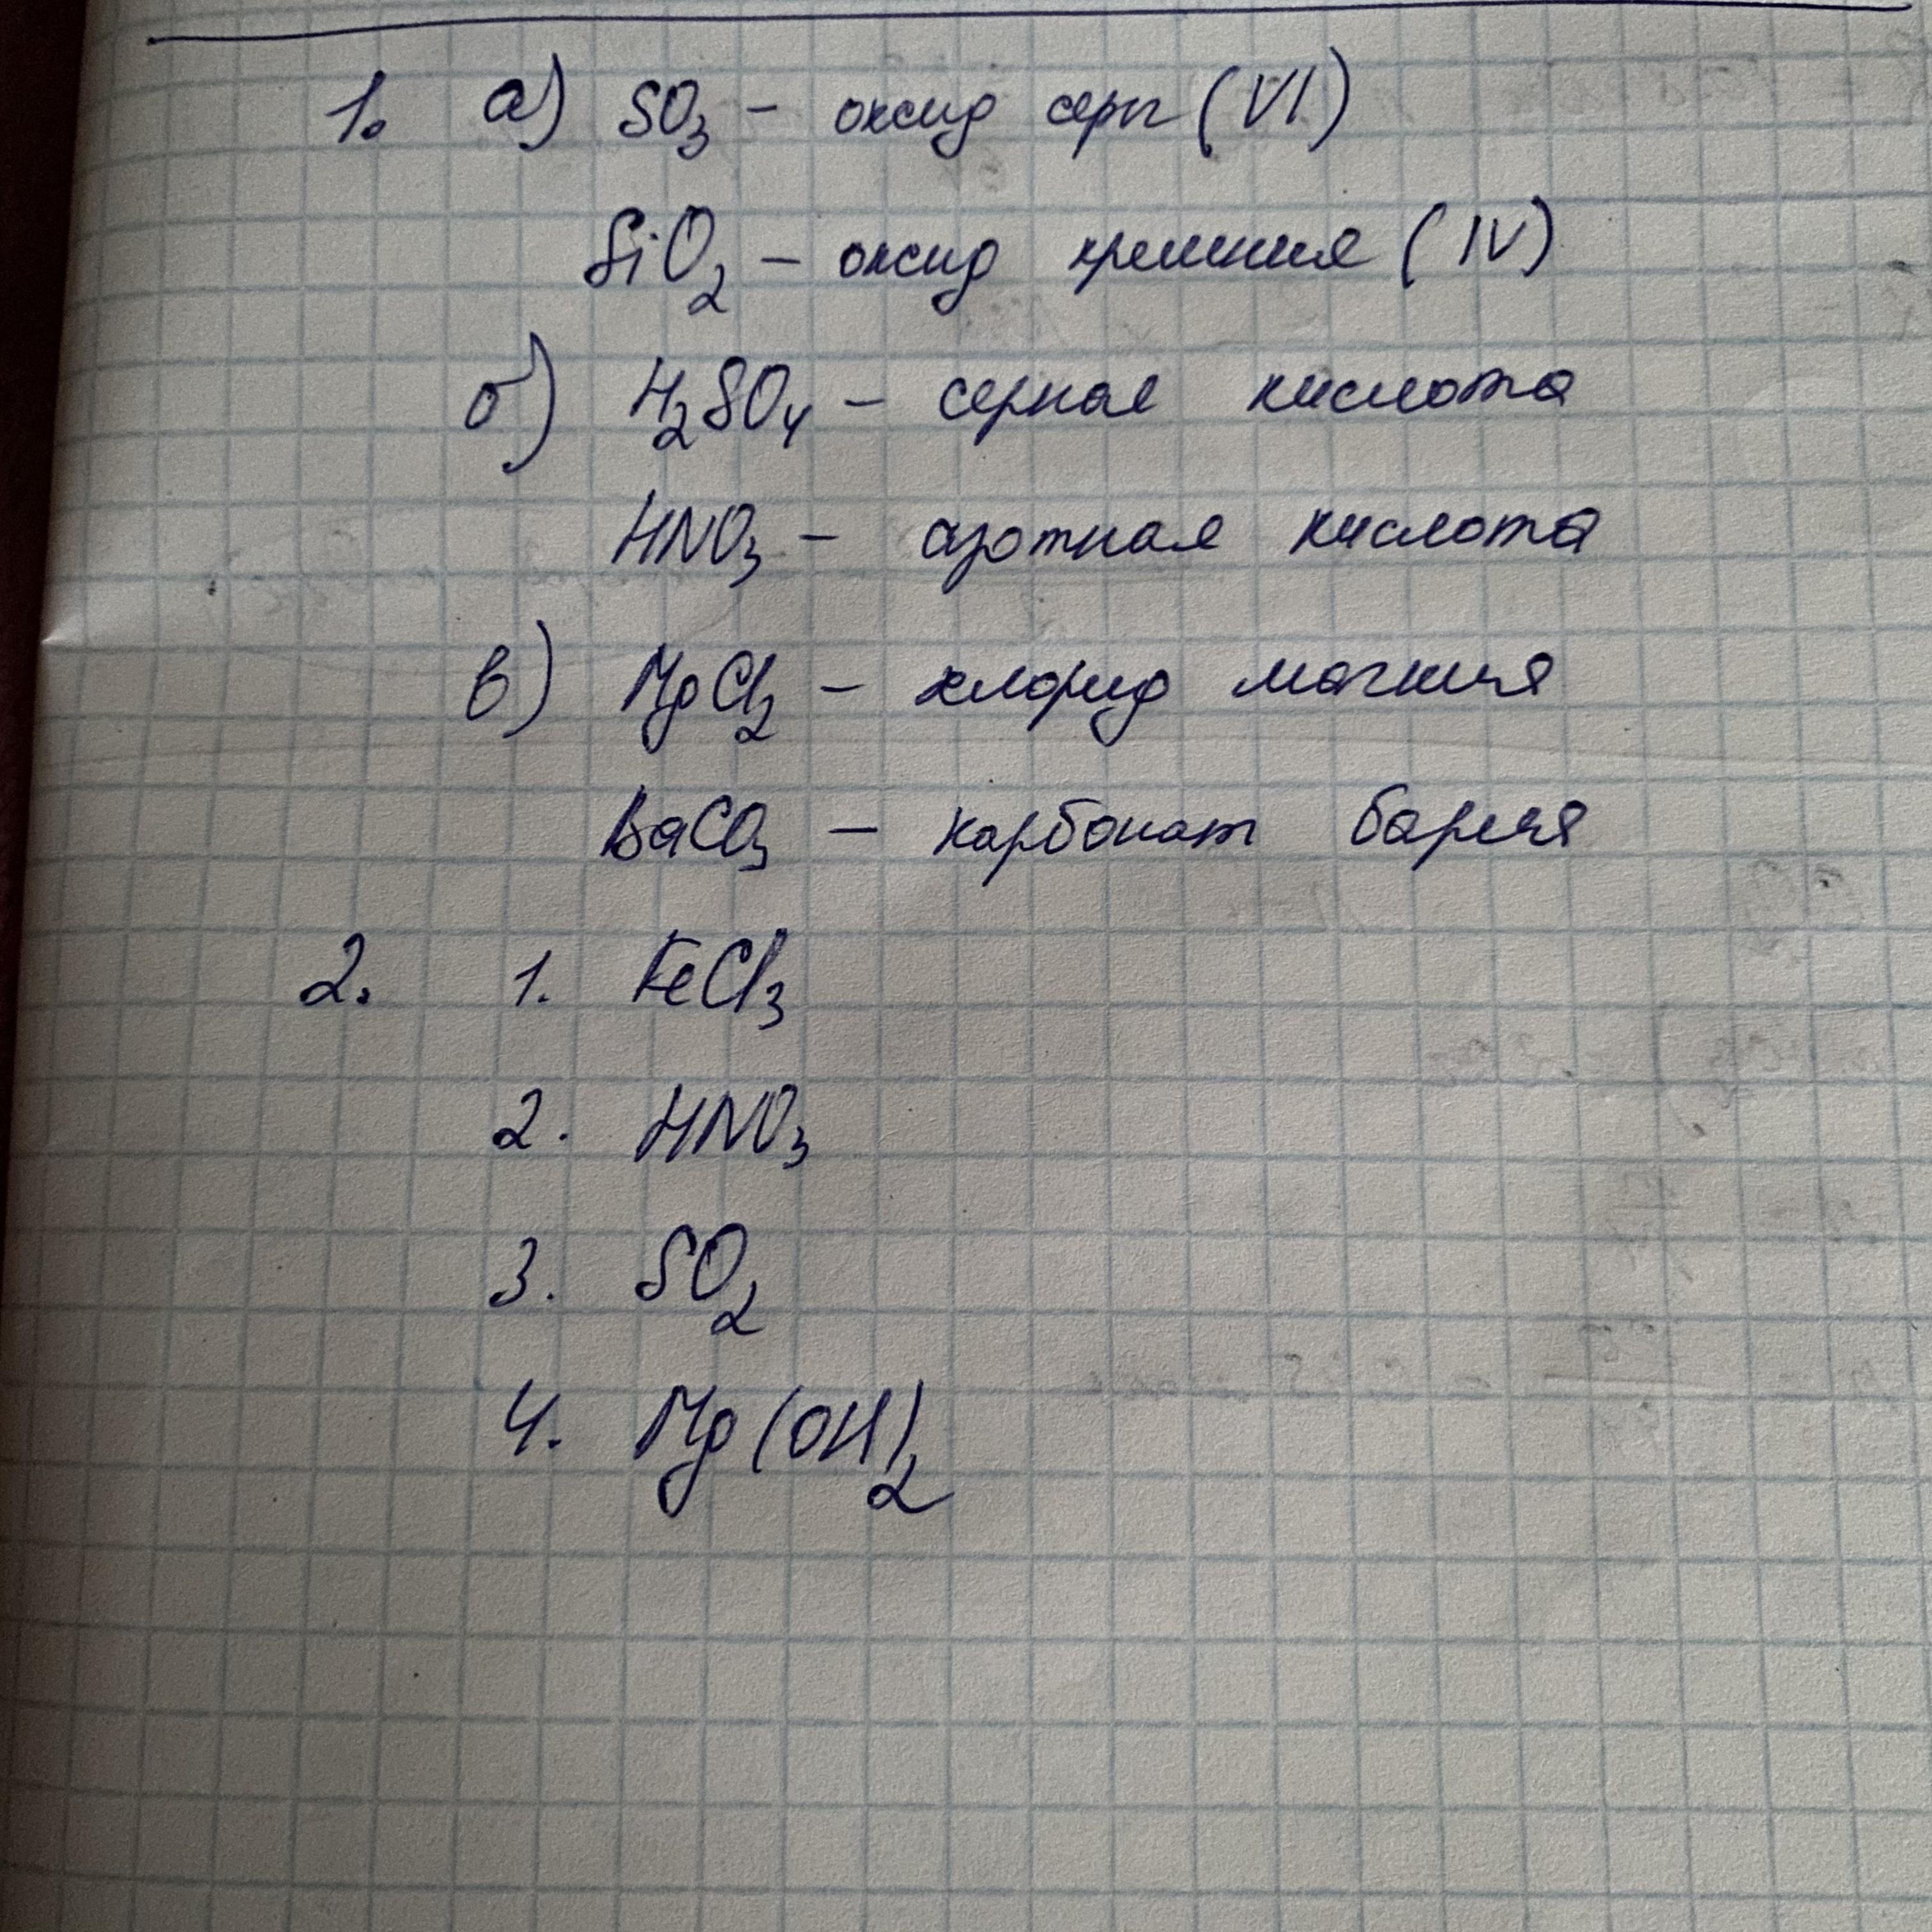 1. а) SO₃ – оксид серы (VI)
SiO₂ – оксид кремния (IV)
б) H₂SO₄ – серная кислота
HNO₃ – азотная кислота
в) MgCl₂ – хлорид магния
BaCO₃ – карбонат бария
2. 1. FeCl₃
2. HNO₃
3. SO₂
4. Mg(OH)₂